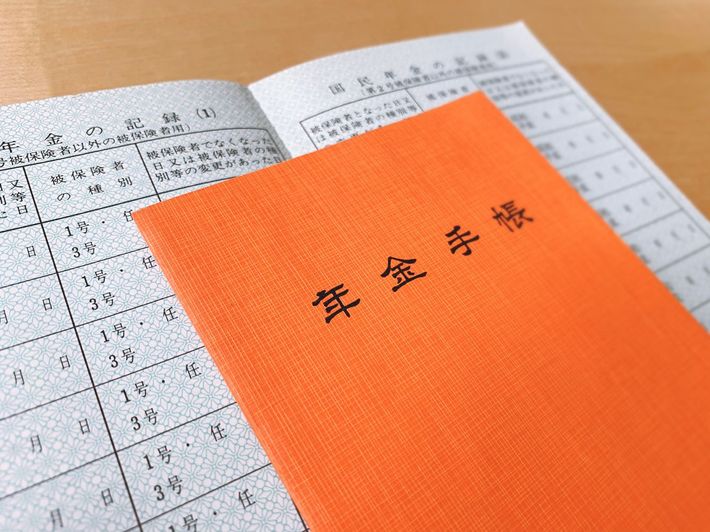 年金手帳
年金の記録(1)
号被保険者以外の被保険者用)
被保険者
の種別
被保険者でなくなった
日又は被保険者の種
別等の変更があった日
日 1号・任
3号
月 日 1号・任
3号
月 日 1号・任
3号
月 日 1号・任
3号
月 日 1号・任
3号
1号・任
国民年金の記録
(第2号被保険者以外の被保険者用)
被保険者となった日又
は被保険者の種別等